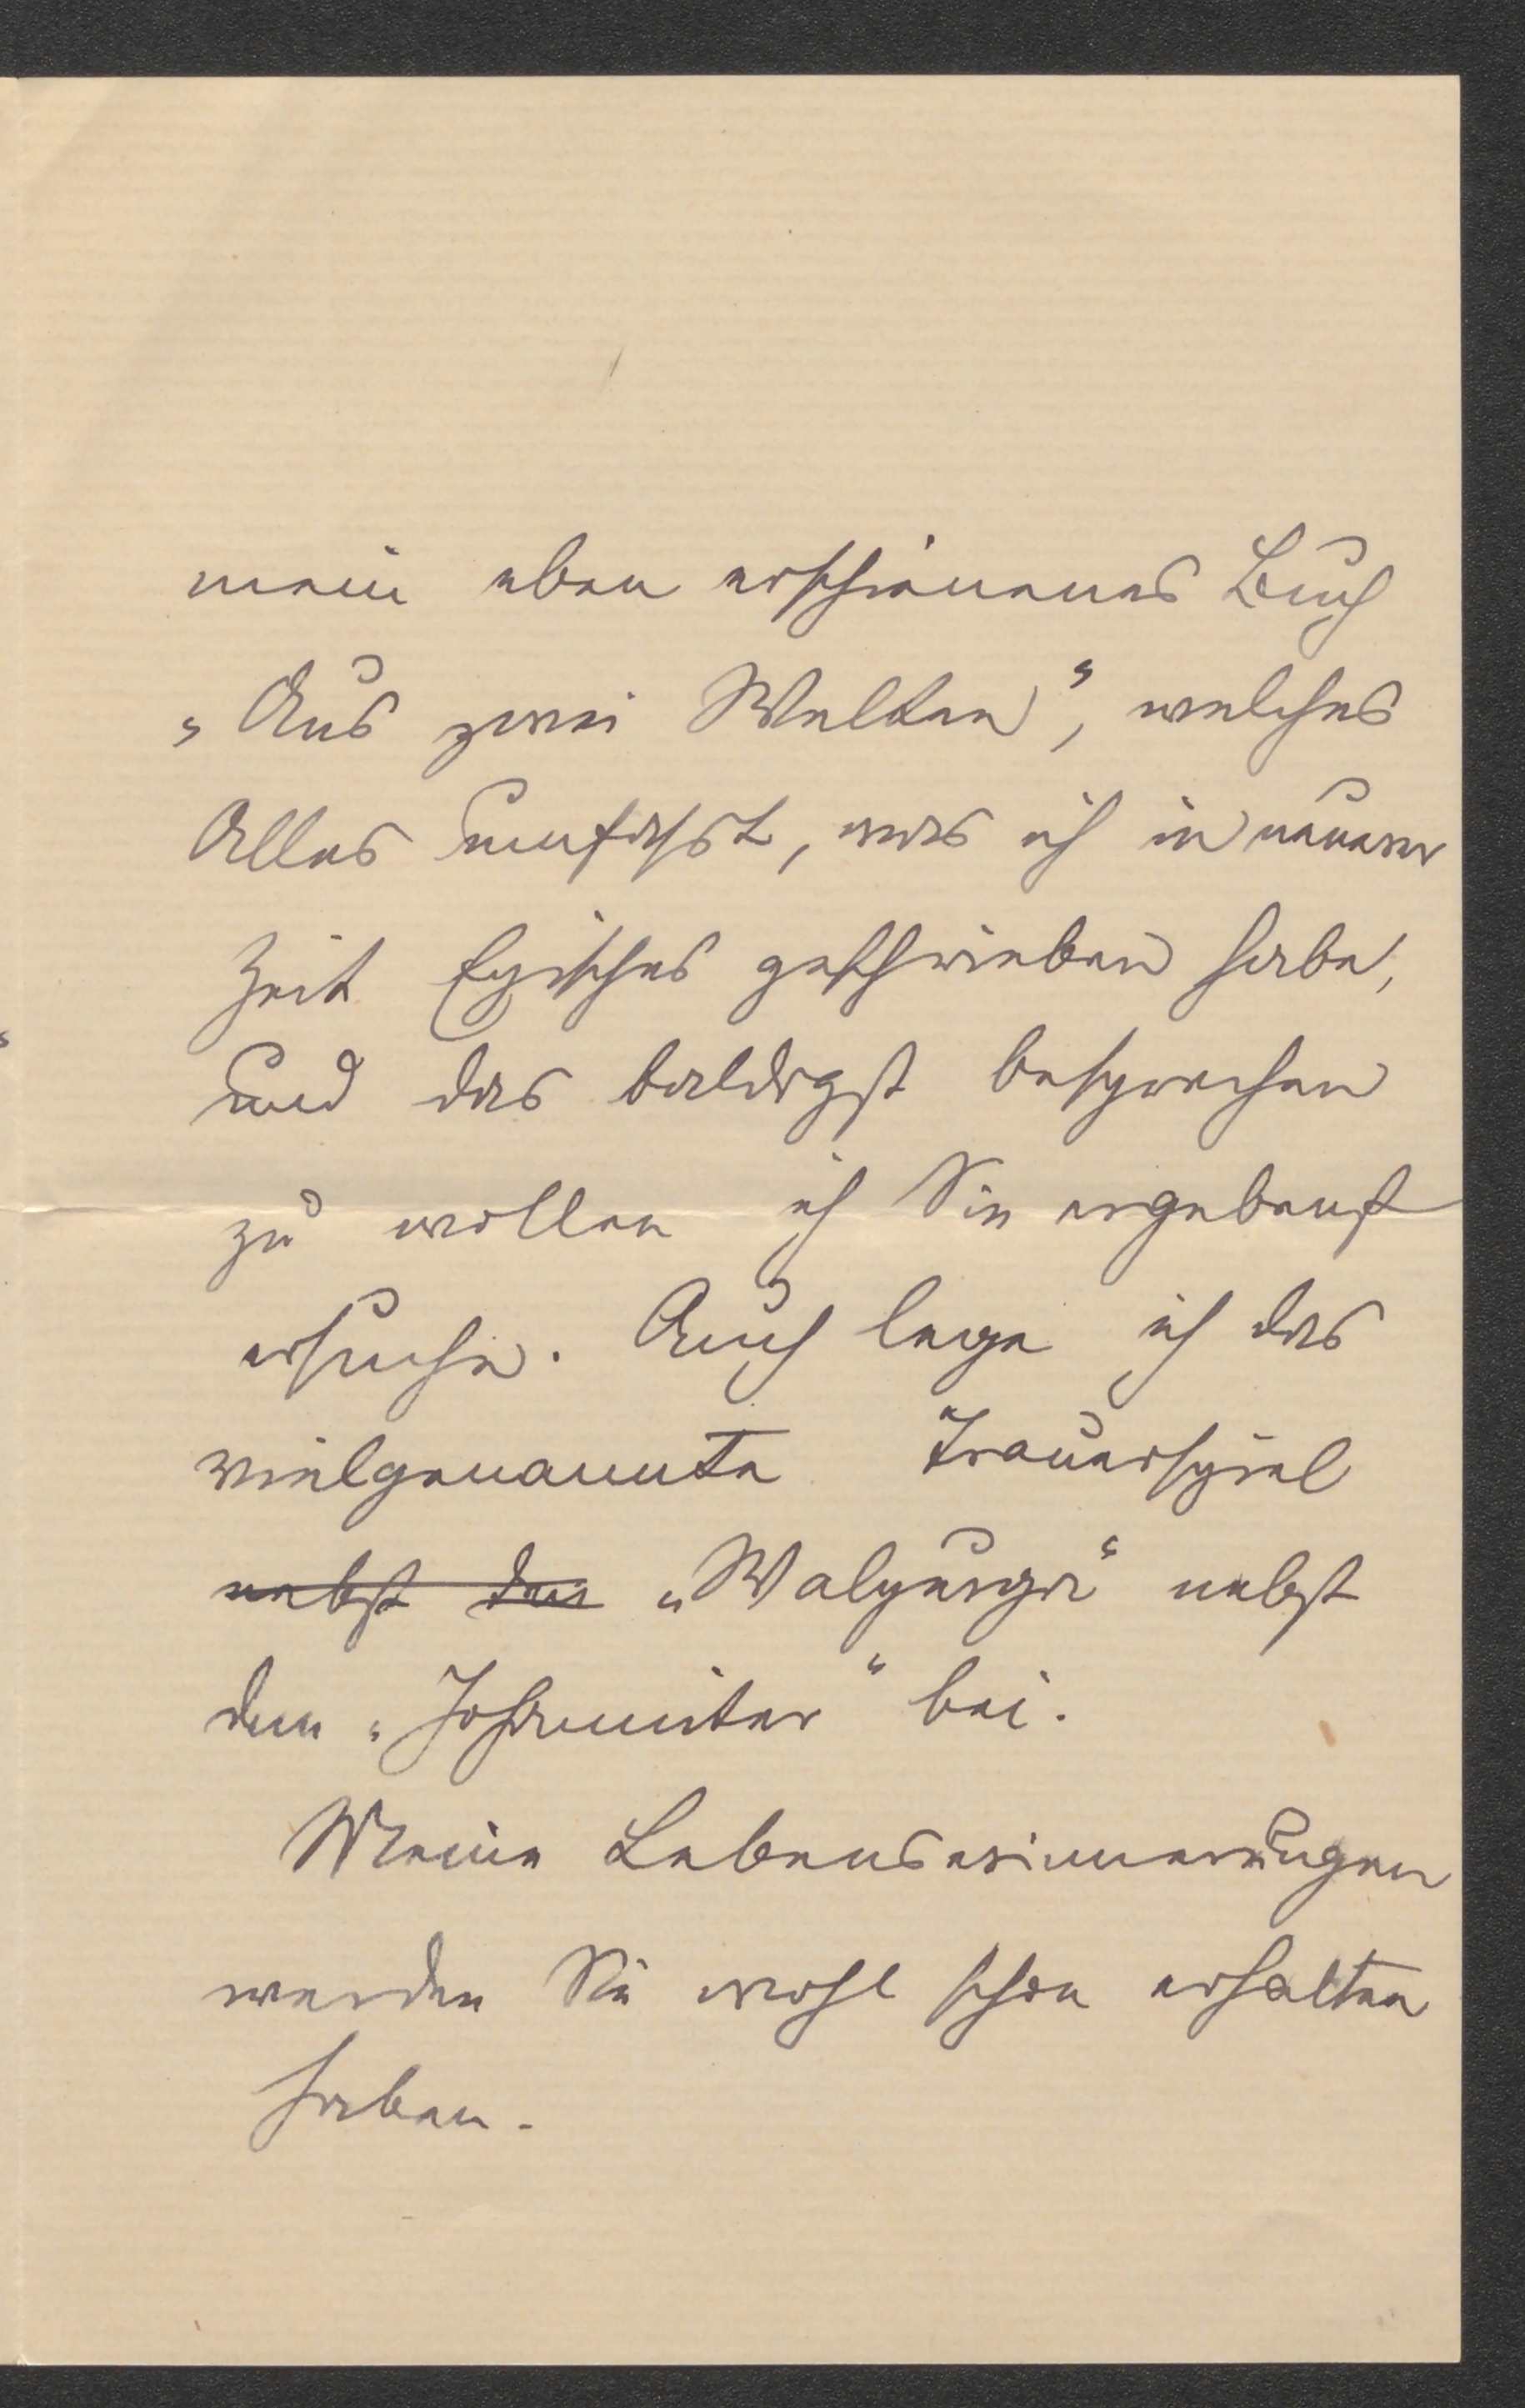 mein eben erschienenes Buch
„Aus zwei Welten“, welches
Alles umfasst, was ich in neuerer
Zeit Episches geschrieben habe,
und das baldigst besprechen
zu wollen ich Sie ergebenst
ersuche. Auch lege ich das
vielgenannte Trauerspiel
nebst den „Walpurga“ nebst
dem „Johanniter“ bei.
Meine Lebenserinnerungen
werden Sie wohl schon erhalten
haben.